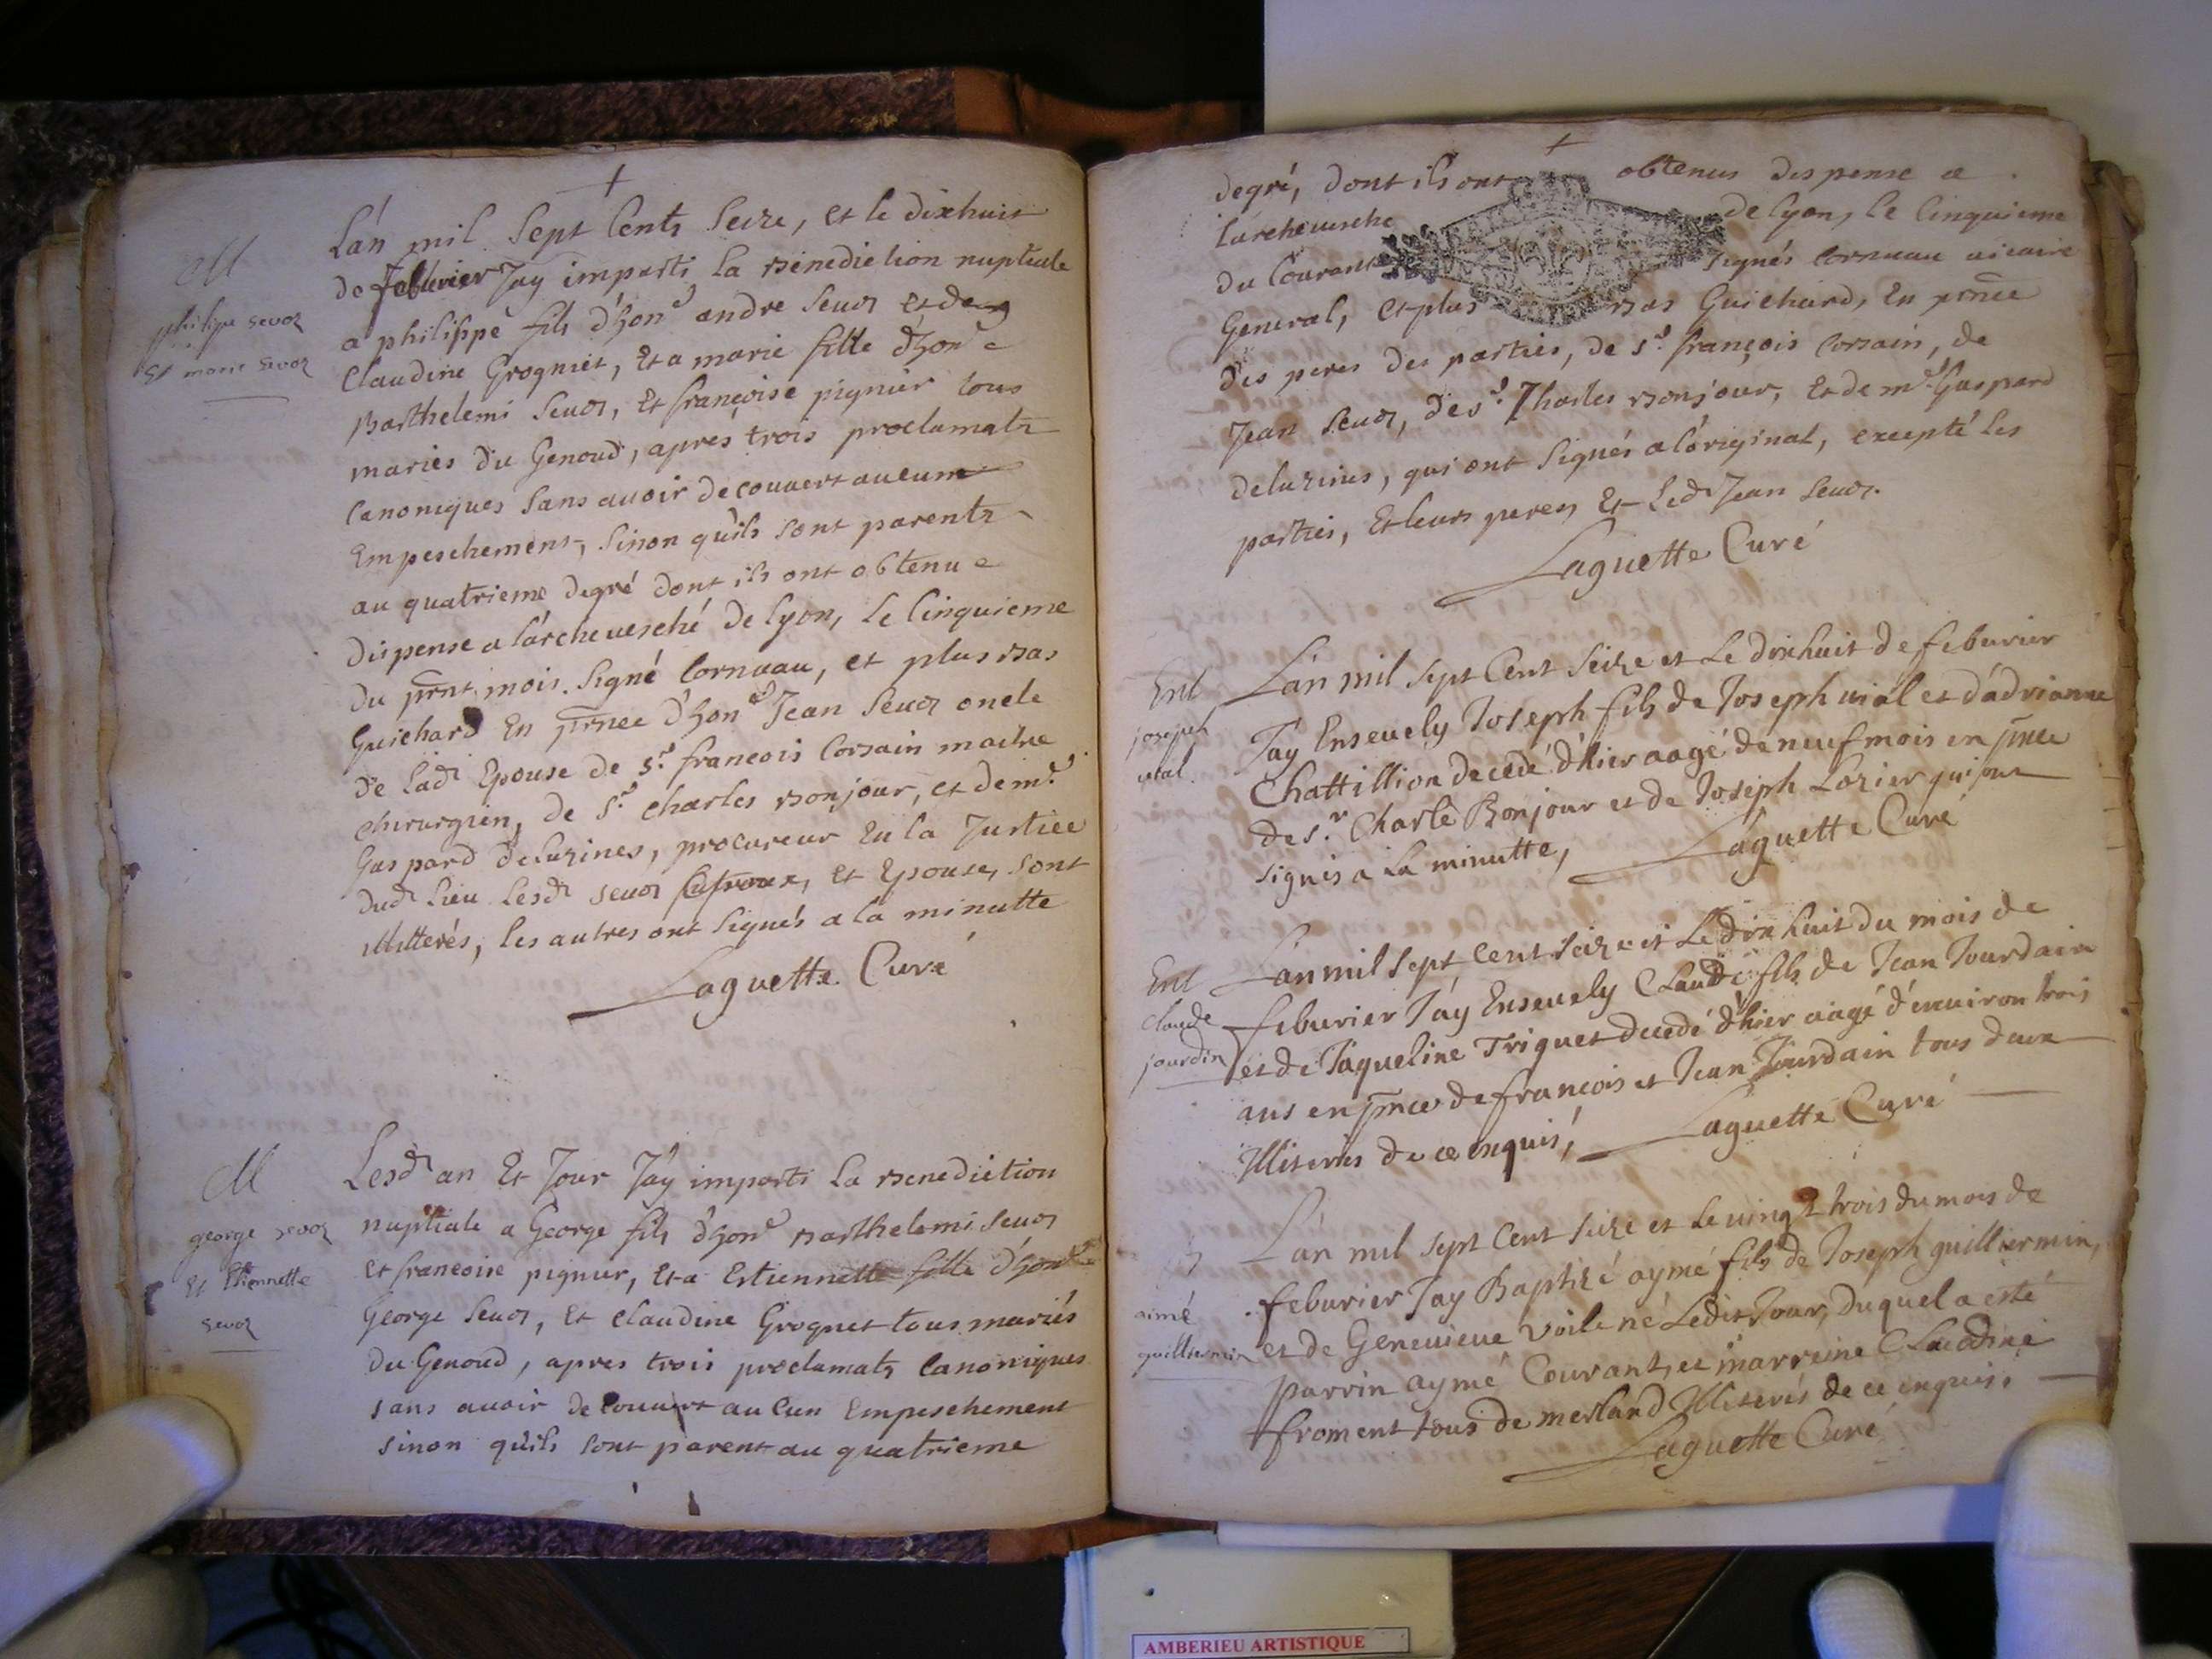 +
M
philipe sevoz
et marie sevoz
L'an mil Sept Cents Seize, et le dixhuit
de febvrier J'ay imparti la Benediction nuptiale
a philippe fils d'hon^e andre Sevoz et de
Claudine Grogniet, Et a marie fille d'hon^e
Barthelemi Sevoz, Et françoise pignier tous
mariés du Genoud, aprés trois proclamats
Canoniques Sans avoir decouvert aucum
Empeschement, Sinon quils sont parents
au quatrieme degré dont ils ont obtenu
dispense a l'archevesché de lyon, le Cinquieme
du pñt mois. Signé Cornuau, et plus Bas
Guichard En pñce d'hon^e Jean Sevoz oncle
de lad^e Epouse de s^r françois Corsain maitre
chirurgien, de S^r Charles Bonjour, et de m^e
Gaspard deluzines, procureur En la Justice
dud^t lieu Lesd^ts sevoz, Et Epouse, sont
illitterés, les autres ont signés a la minutte
Laguette Curé
M
george sevoz
et Etiennette
sevoz
Lesd^ts an Et Jour J'ay imparti La Benediction
nuptiale a George fils d'hon^e Barthelemi Sevoz
Et francoise pignier, Et a Estiennette fille d'hon^e
George Sevoz, Et Claudine Grognet tous mariés
du Genoud, apres trois proclamats Canoniques
sans avoir decouvert aucun Empeschement
sinon qu'ils sont parent au quatrieme
+
degré, dont ils ont obtenus dispense a
l'archevesche de lyon, le Cinquieme
du Courant signés Cornuau vicaire
General, et plus Bas Guichard, En pñce
des peres des parties, de s^r françois Corsain, de
Jean Sevoz, de s^r Charles Bonjour, Et de m^e Gaspard
deluzines, qui ont Signés a l'original, excepté les
parties, Et leurs peres Et Led^t Jean Sevoz.
Laguette Curé
Ent
joseph
vial
L'an mil sept Cent Seize et Le dixhuit de feburier
J'ay Ensevely Joseph fils de Joseph vial et d'adrianne
Chattillion decedé d'hier aagé de neuf mois en pñce
de s.^r Charle Bonjour et de Joseph Lozier qui sont
signés a La minutte, Laguette Curé
Ent
claude
jourdin
L'an mil sept Cent seize et Le dix huit du mois de
feburier J'ay Ensevely Claude fils de Jean Jourdain
et de Jaqueline Triguet decedé d'hier aagé d'environ trois
ans en pñce de françois et Jean Jourdain tous deux
Illiterés de ce enquis, Laguette Curé
B
aimé
guilliermin
L'an mil sept Cent seize et le vingt trois du mois de
feburier J'ay Baptizé aymé fils de Joseph guilliermin,
et de Genevieve voile né Ledit Jour, duquel a esté
parrin aymé Courant, et marreine Claudine
froment tous de merland Illiterés de ce enquis.
Laguette Curé
AMBERIEU ARTISTIQUE